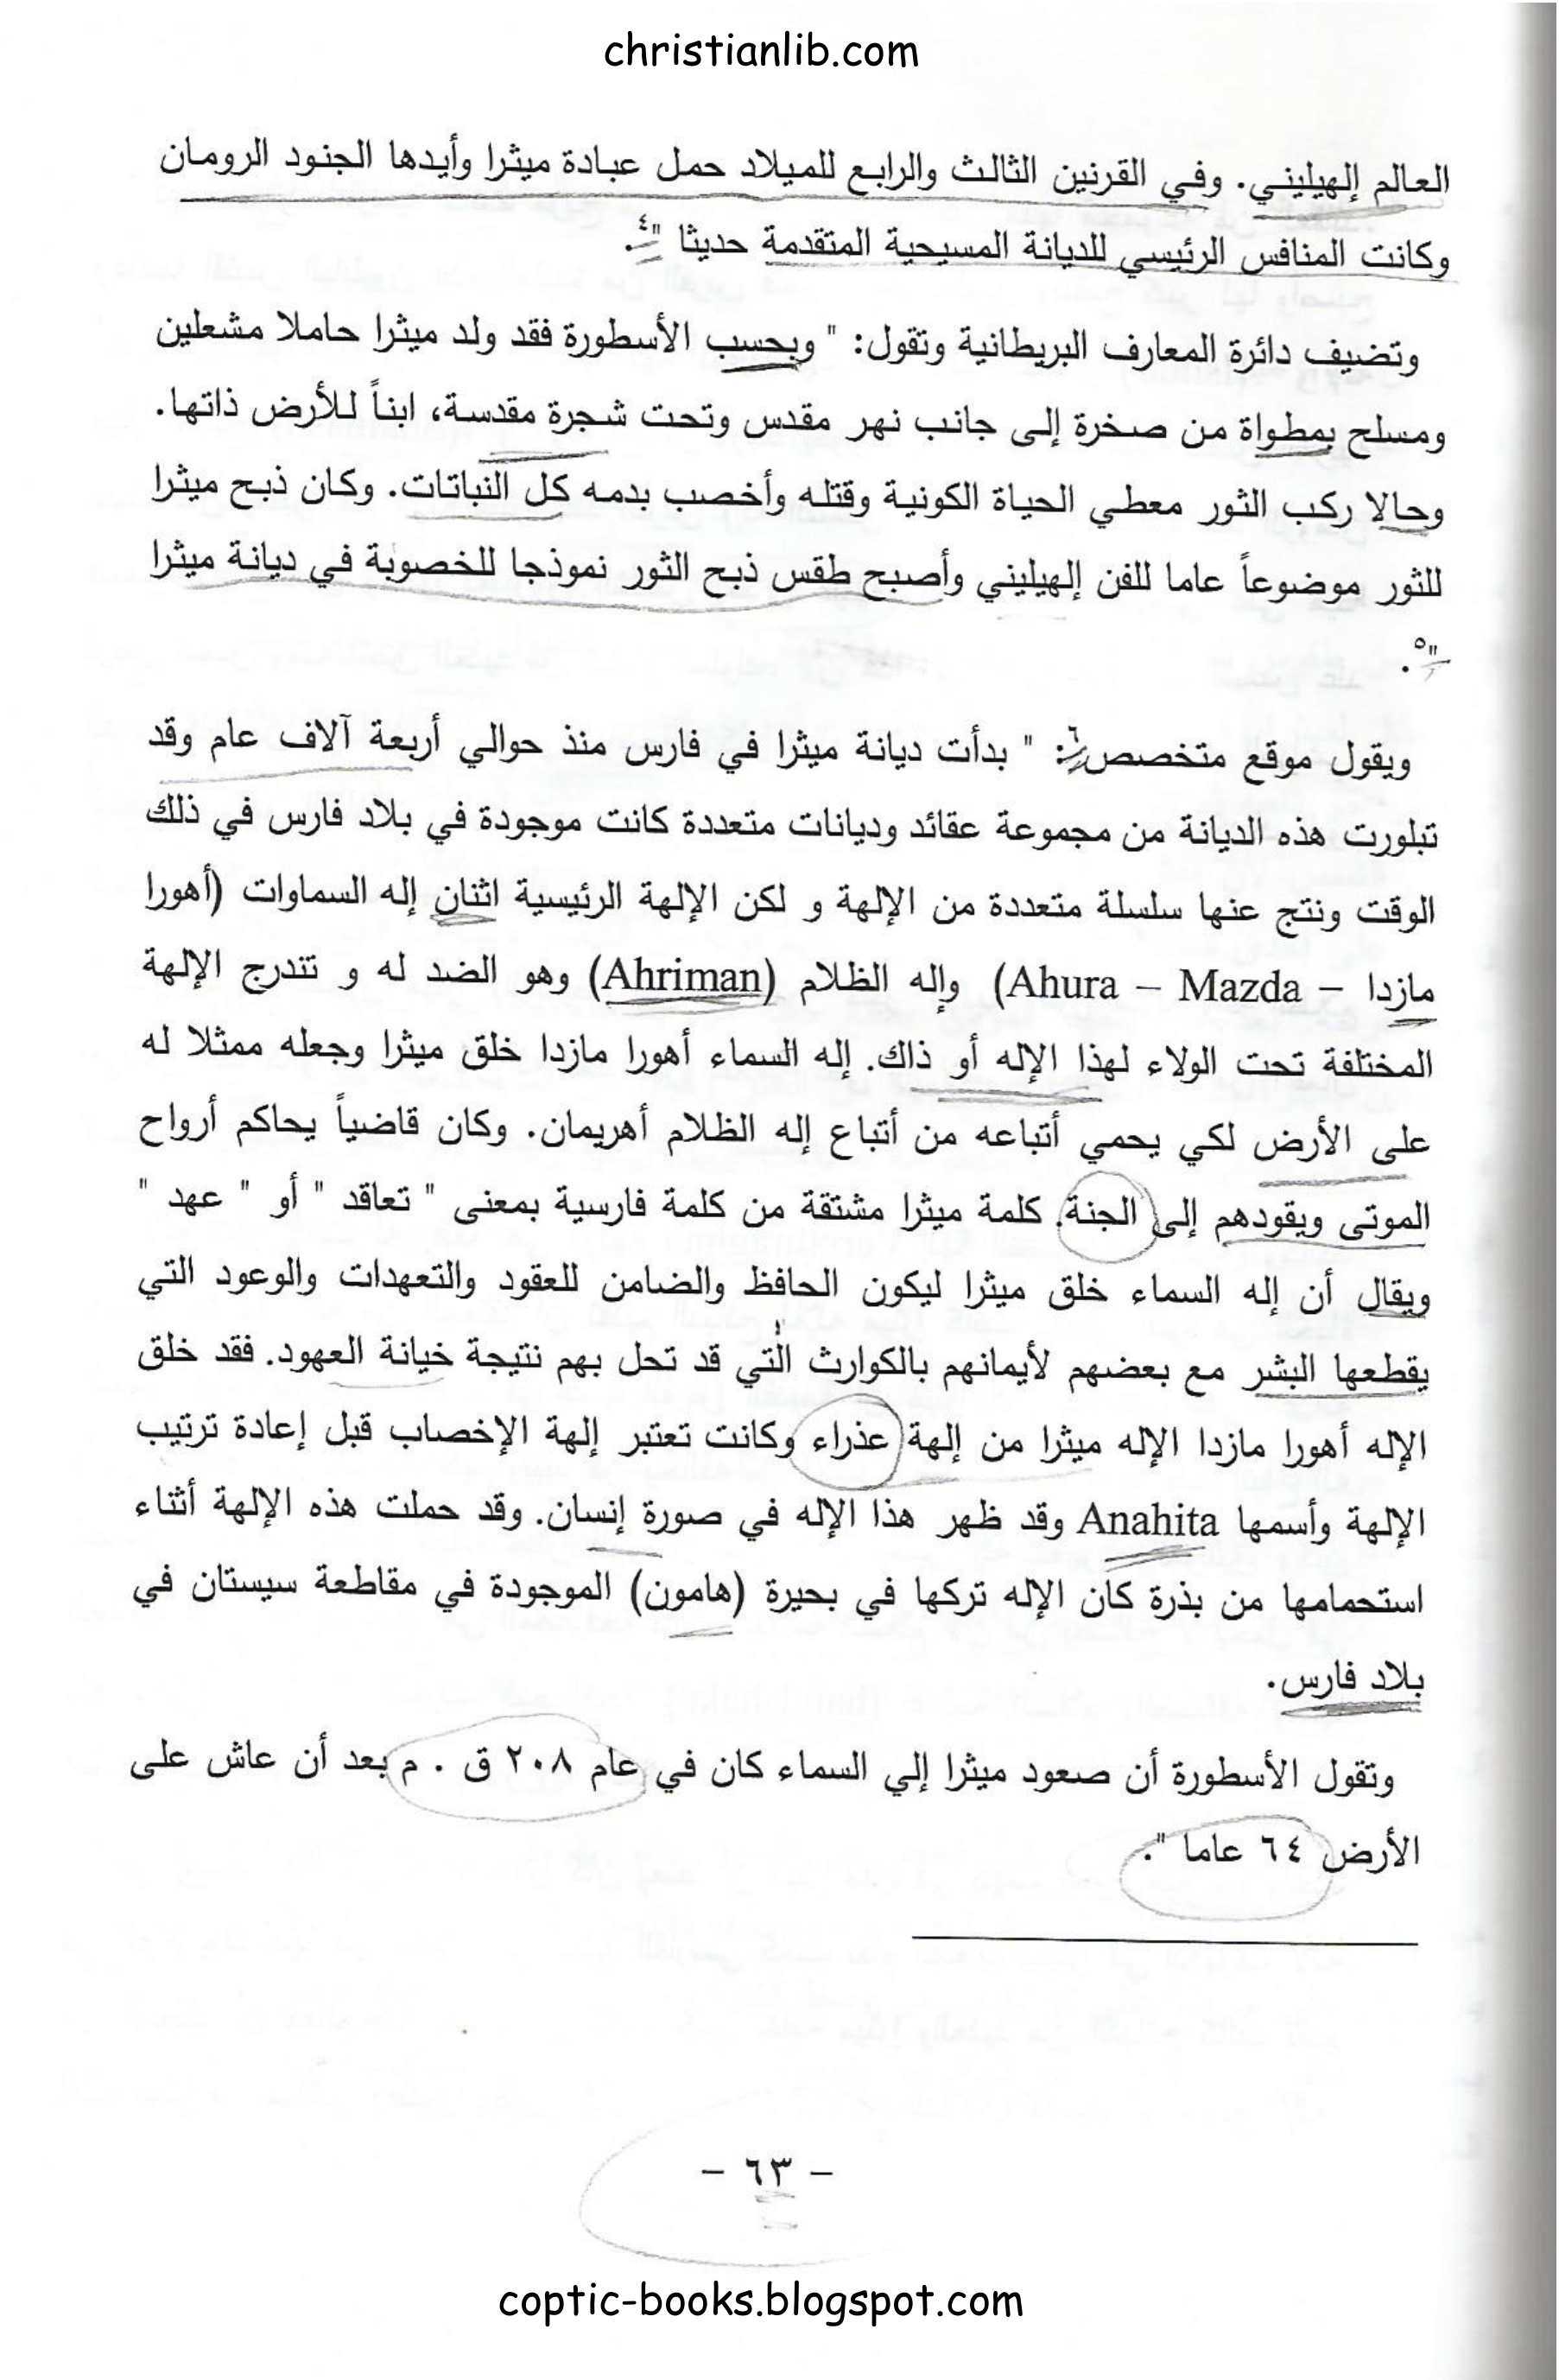 christianlib.com
العالم إلهيليني. وفي القرنين الثالث والرابع للميلاد حمل عبادة ميثرا وأيدها الجنود الرومان
وكانت المنافس الرئيسي للديانة المسيحية المتقدمة حديثا "٤.
وتضيف دائرة المعارف البريطانية وتقول: " وبحسب الأسطورة فقد ولد ميثرا حاملا مشعلين
ومسلح بمطواة من صخرة إلى جانب نهر مقدس وتحت شجرة مقدسة، ابناً للأرض ذاتها.
وحالا ركب الثور معطي الحياة الكونية وقتله وأخصب بدمه كل النباتات. وكان ذبح ميثرا
للثور موضوعاً عاما للفن إلهيليني وأصبح طقس ذبح الثور نموذجا للخصوبة في ديانة ميثرا
"٥.
ويقول موقع متخصص٦: " بدأت ديانة ميثرا في فارس منذ حوالي أربعة آلاف عام وقد
تبلورت هذه الديانة من مجموعة عقائد وديانات متعددة كانت موجودة في بلاد فارس في ذلك
الوقت ونتج عنها سلسلة متعددة من الإلهة و لكن الإلهة الرئيسية اثنان إله السماوات (أهورا
مازدا – Ahura – Mazda) وإله الظلام (Ahriman) وهو الضد له و تندرج الإلهة
المختلفة تحت الولاء لهذا الإله أو ذاك. إله السماء أهورا مازدا خلق ميثرا وجعله ممثلا له
على الأرض لكي يحمي أتباعه من أتباع إله الظلام أهريمان. وكان قاضياً يحاكم أرواح
الموتى ويقودهم إلى الجنة. كلمة ميثرا مشتقة من كلمة فارسية بمعنى " تعاقد " أو " عهد "
ويقال أن إله السماء خلق ميثرا ليكون الحافظ والضامن للعقود والتعهدات والوعود التي
يقطعها البشر مع بعضهم لأيمانهم بالكوارث التي قد تحل بهم نتيجة خيانة العهود. فقد خلق
الإله أهورا مازدا الإله ميثرا من إلهة عذراء وكانت تعتبر إلهة الإخصاب قبل إعادة ترتيب
الإلهة وأسمها Anahita وقد ظهر هذا الإله في صورة إنسان. وقد حملت هذه الإلهة أثناء
استحمامها من بذرة كان الإله تركها في بحيرة (هامون) الموجودة في مقاطعة سيستان في
بلاد فارس.
وتقول الأسطورة أن صعود ميثرا إلي السماء كان في عام ٢٠٨ ق . م بعد أن عاش على
الأرض ٦٤ عاما ".
- ٦٣ -
coptic-books.blogspot.com